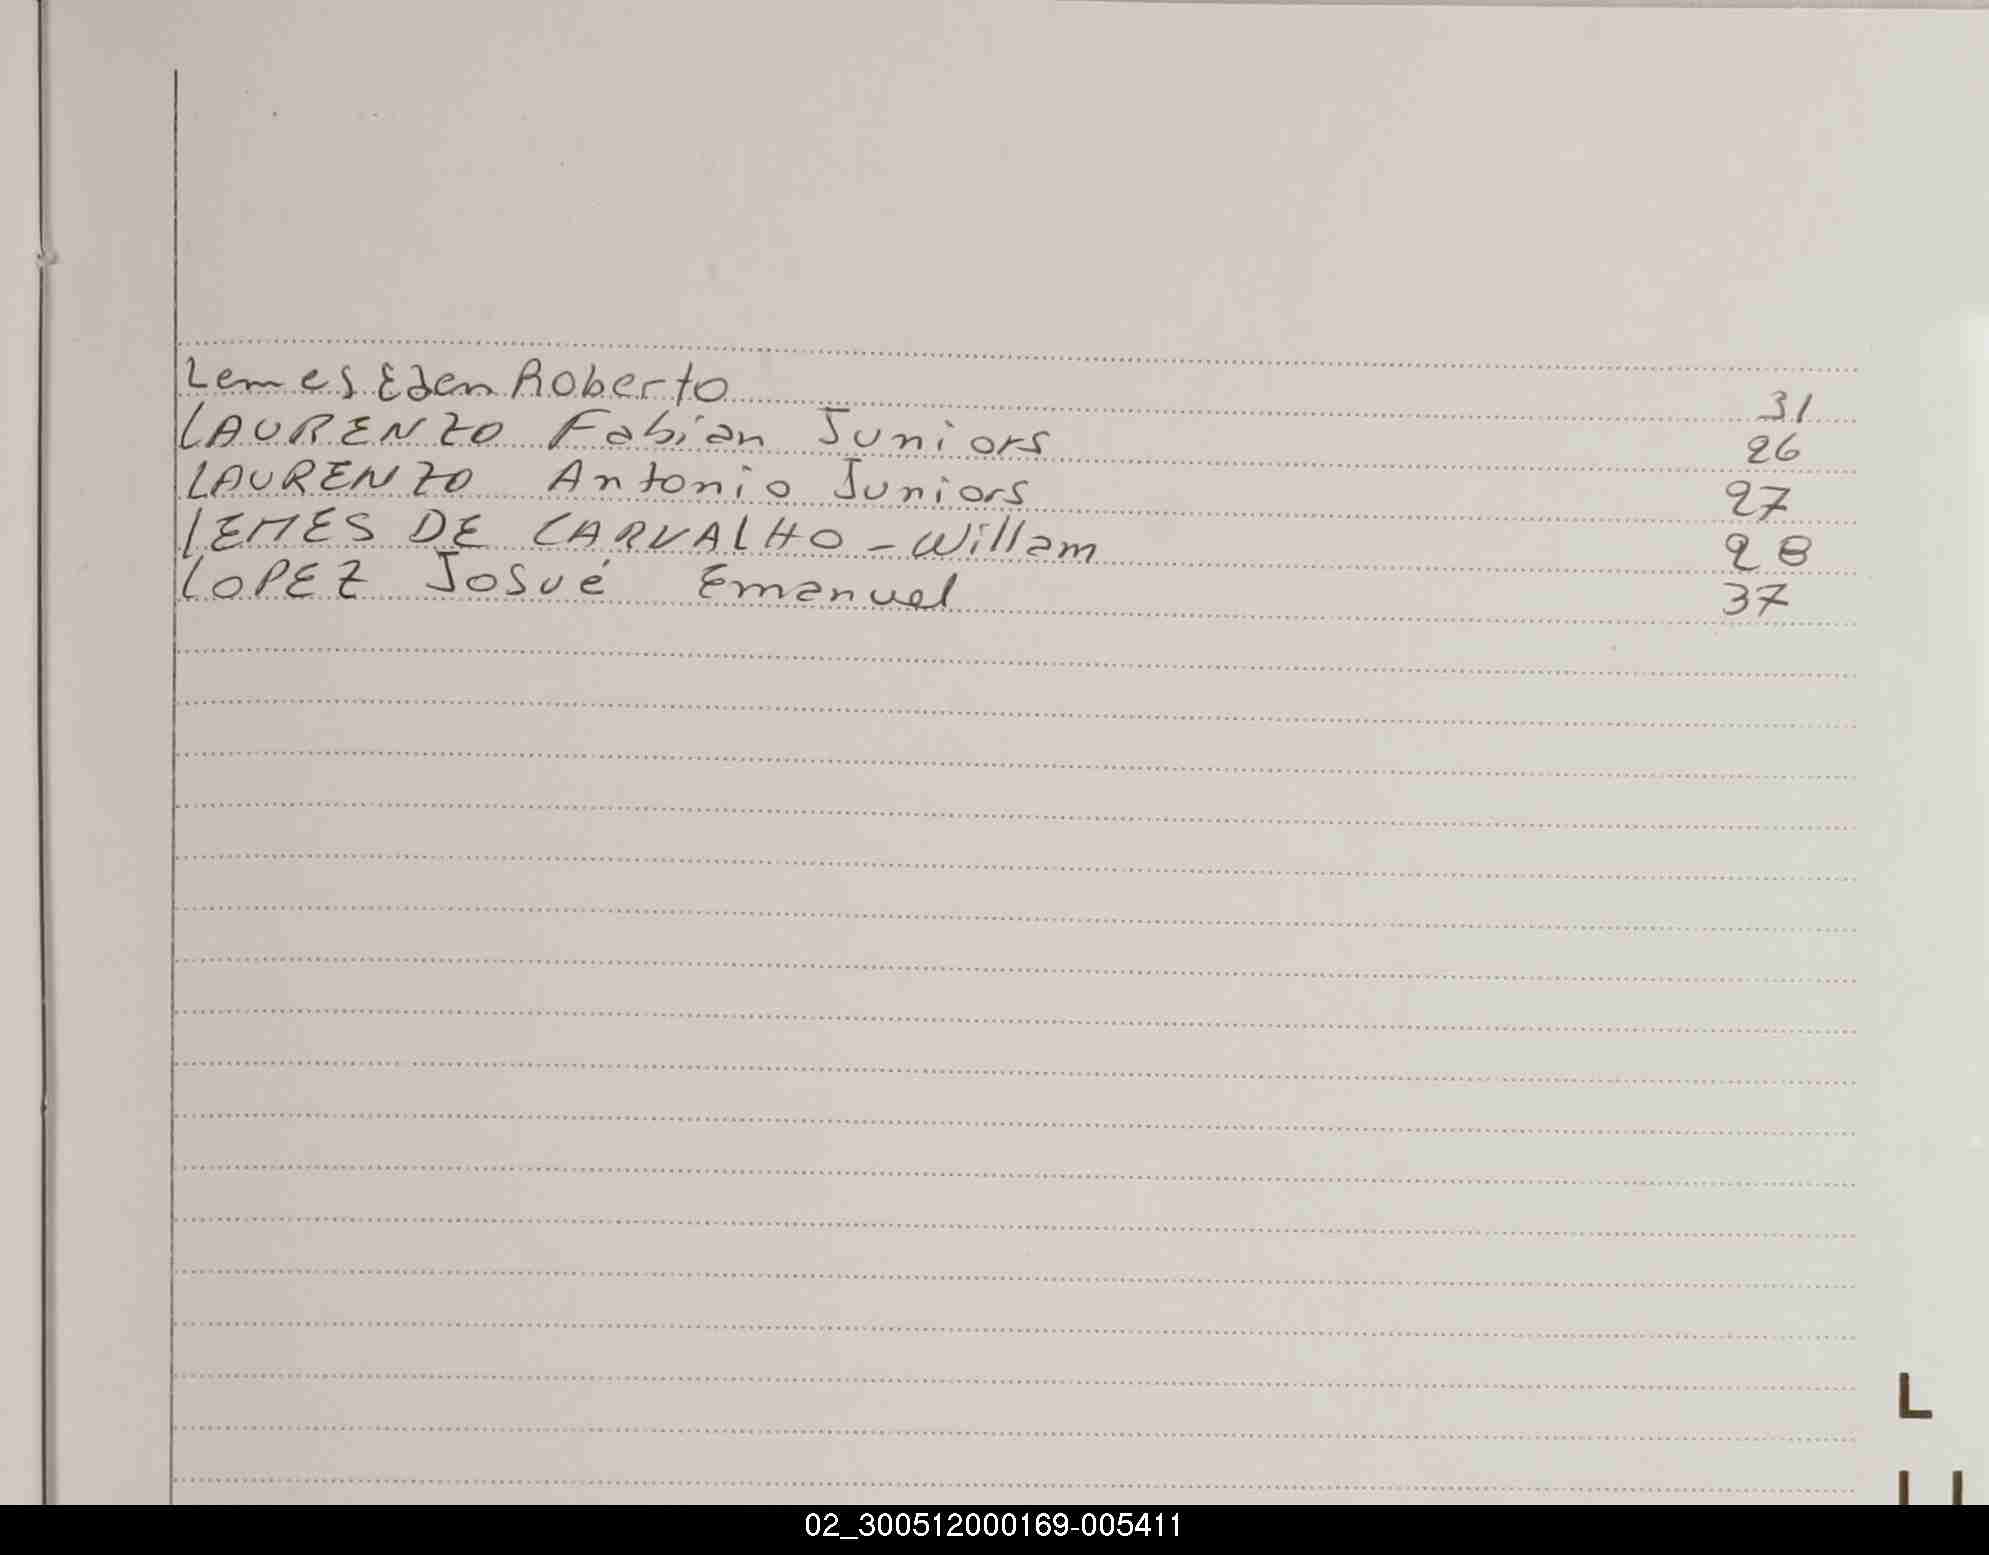 Lemes Eden Roberto 31
LAURENZO Fabian Juniors 26
LAURENZO Antonio Juniors 27
LEMES DE CARVALHO - Willam 28
LOPEZ Josué Emanuel 37
L
02_300512000169-005411